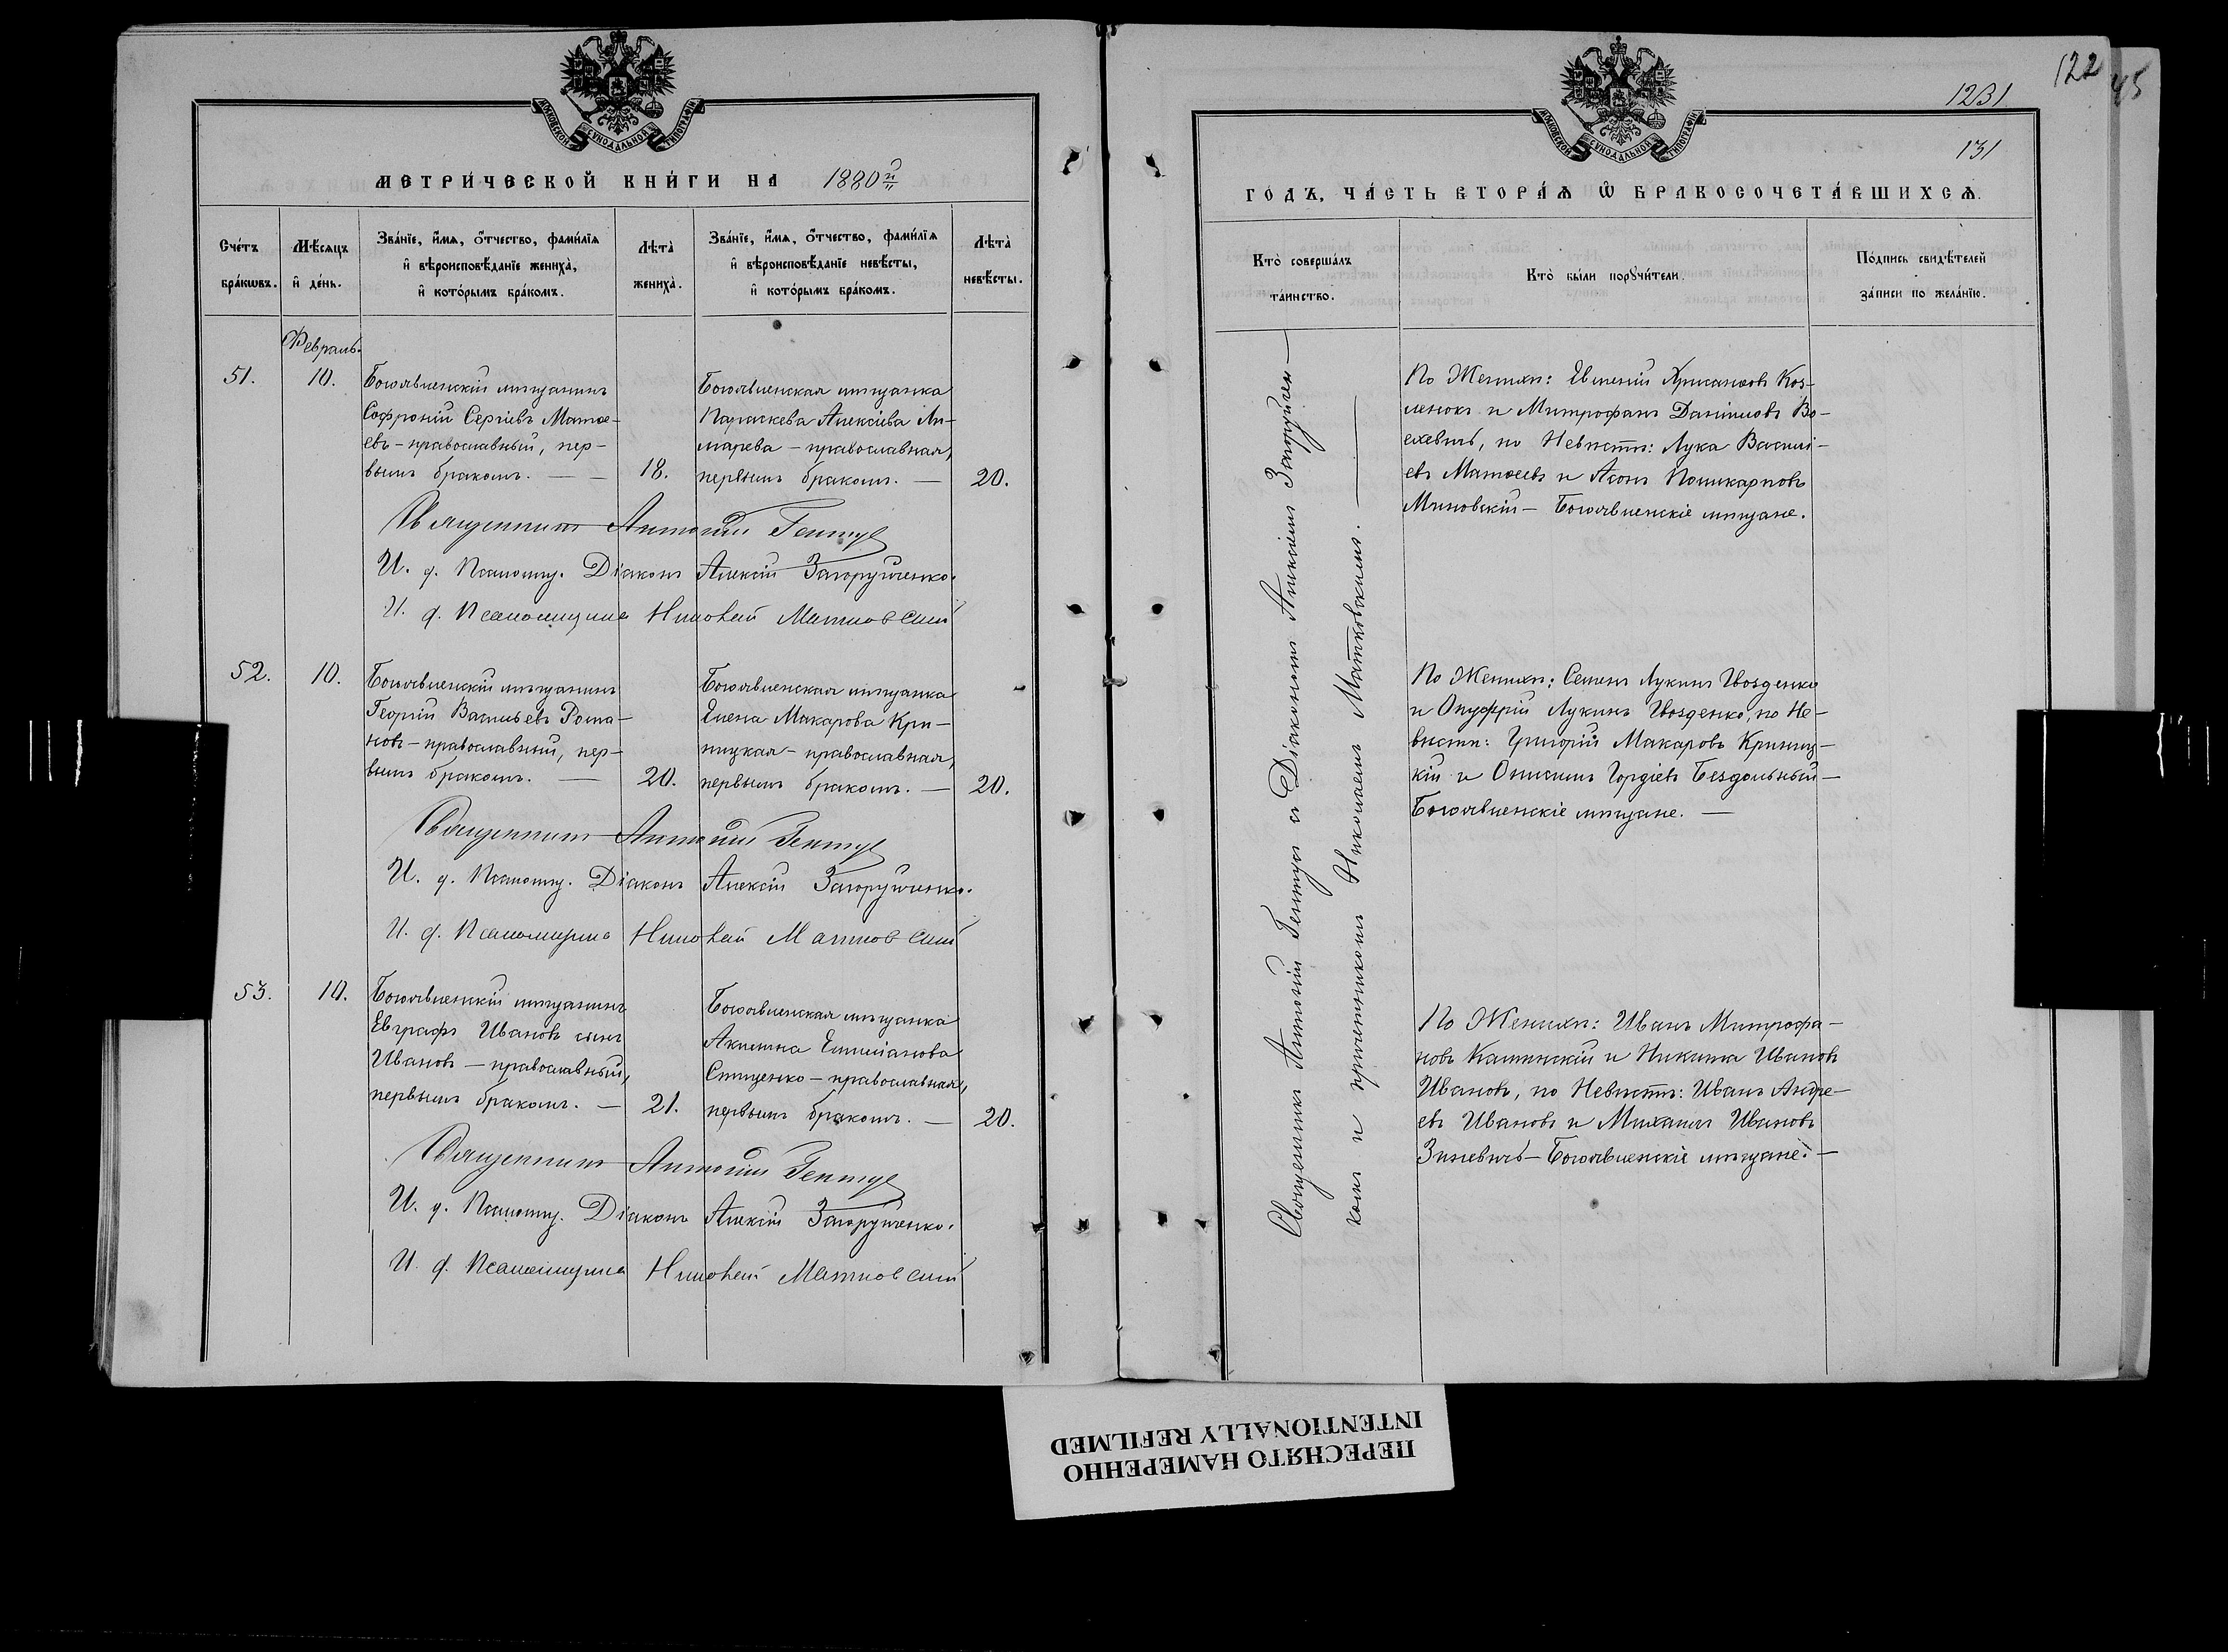 МЕТРИ́ЧЕСКОЙ КНИ́ГИ НА 1880й
Сче́тъ бра́кωвъ.
Мѣ́сяцъ и҆ де́нь.
Зва́нїе, и҆́мѧ, о҆́тчество, фами́лїѧ и҆ вѣроисповѣ́данїе жениха̀, и҆ кото́рымъ бра́комъ.
Лѣта̀ жениха̀.
Зва́нїе, и҆́мѧ, о҆́тчество, фами́лїѧ и҆ вѣроисповѣ́данїе невѣ́сты, и҆ кото́рымъ бра́комъ.
Лѣта̀ невѣ́сты.
Февраль.
51.
10.
Богоявленскій мѣщанинъ
Софроній Сергіевъ Матве-
евъ – православный, пер-
вымъ бракомъ. — —
18.
Богоявленская мѣщанка
Параскева Алексіева
– православная,
первымъ бракомъ. —
20.
Священникъ Антоній
И. д. Псаломщ. Діаконъ Алексій Загоруйченко.
И. д. Псаломщика Николай Матковскій
52.
10.
Богоявленскій мѣщанинъ
Георгій Васильевъ Рома-
новъ – православный, пер-
вымъ бракомъ. —
20.
Богоявленская мѣщанка
Елена Макарова Кри-
ницкая – православная,
первымъ бракомъ. —
20.
Священникъ Антоній
И. д. Псаломщ. Діаконъ Алексій Загоруйченко.
И. д. Псаломщика Николай Матковскій
53.
10.
Богоявленскій мѣщанинъ
Евграфъ Ивановъ сынъ
Ивановъ – православный,
первымъ бракомъ. —
21.
Богоявленская мѣщанка
Акилина Емиліанова
– православная,
первымъ бракомъ. —
20.
Священникъ Антоній
И. д. Псаломщ. Діаконъ Алексій Загоруйченко.
И. д. Псаломщика Николай Матковскій
122
45
1231
131
ГО́ДЪ, ЧА́СТЬ ВТОРА́Ѧ Ѡ҆ БРАКОСОЧЕТА́ВШИХСѦ.
Кто̀ соверша́лъ та́инство.
Кто̀ бы́ли порꙋчи́тели.
По́дпись свидѣ́телей за́писи по жела́нїю.
Священникъ Антоній съ Діакономъ Алексіемъ Загоруйчен-
комъ и причетникомъ Николаемъ Матковскимъ. —
По Женихѣ: Евгеній Хрисанѳовъ Коз-
ленокъ и Митрофанъ Даніиловъ
, по Невѣстѣ: Лука Василі-
евъ Матвеевъ и Поликарповъ
– Богоявленскіе мѣщане.
По Женихѣ: Семенъ Лукинъ Гвозденко
и Онуфрій Лукинъ Гвозденко, по Не-
вѣстѣ: Григорій Макаровъ Криниц-
кій и Онисимъ Гордіевъ Бездольный –
Богоявленскіе мѣщане. —
По Женихѣ: Иванъ Митрофа-
новъ Калинскій и Никита Ивановъ
Ивановъ, по Невѣстѣ: Иванъ Андре-
евъ Ивановъ и Михаилъ Ивановъ
Зиневичъ – Богоявленскіе мѣщане. —
ПЕРЕСНЯТО НАМЕРЕННО
INTENTIONALLY REFILMED